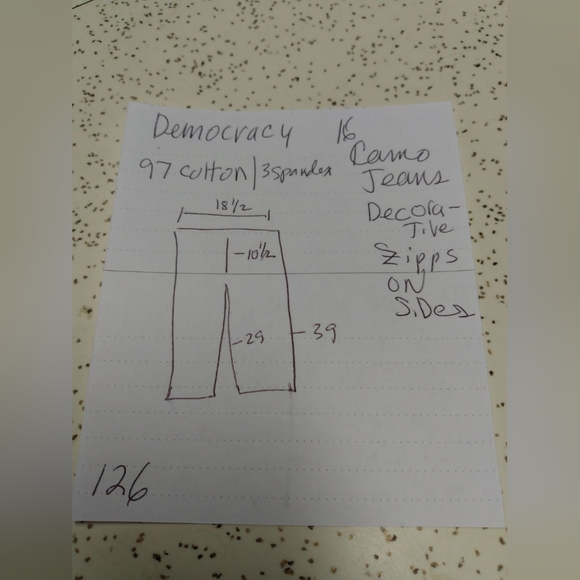 Democracy 16
97 cotton/3 spandex
Camo
Jeans
Decora-
tive
Zipps
ON
SiDes
18 1/2
-10 1/2
-29
-39
126